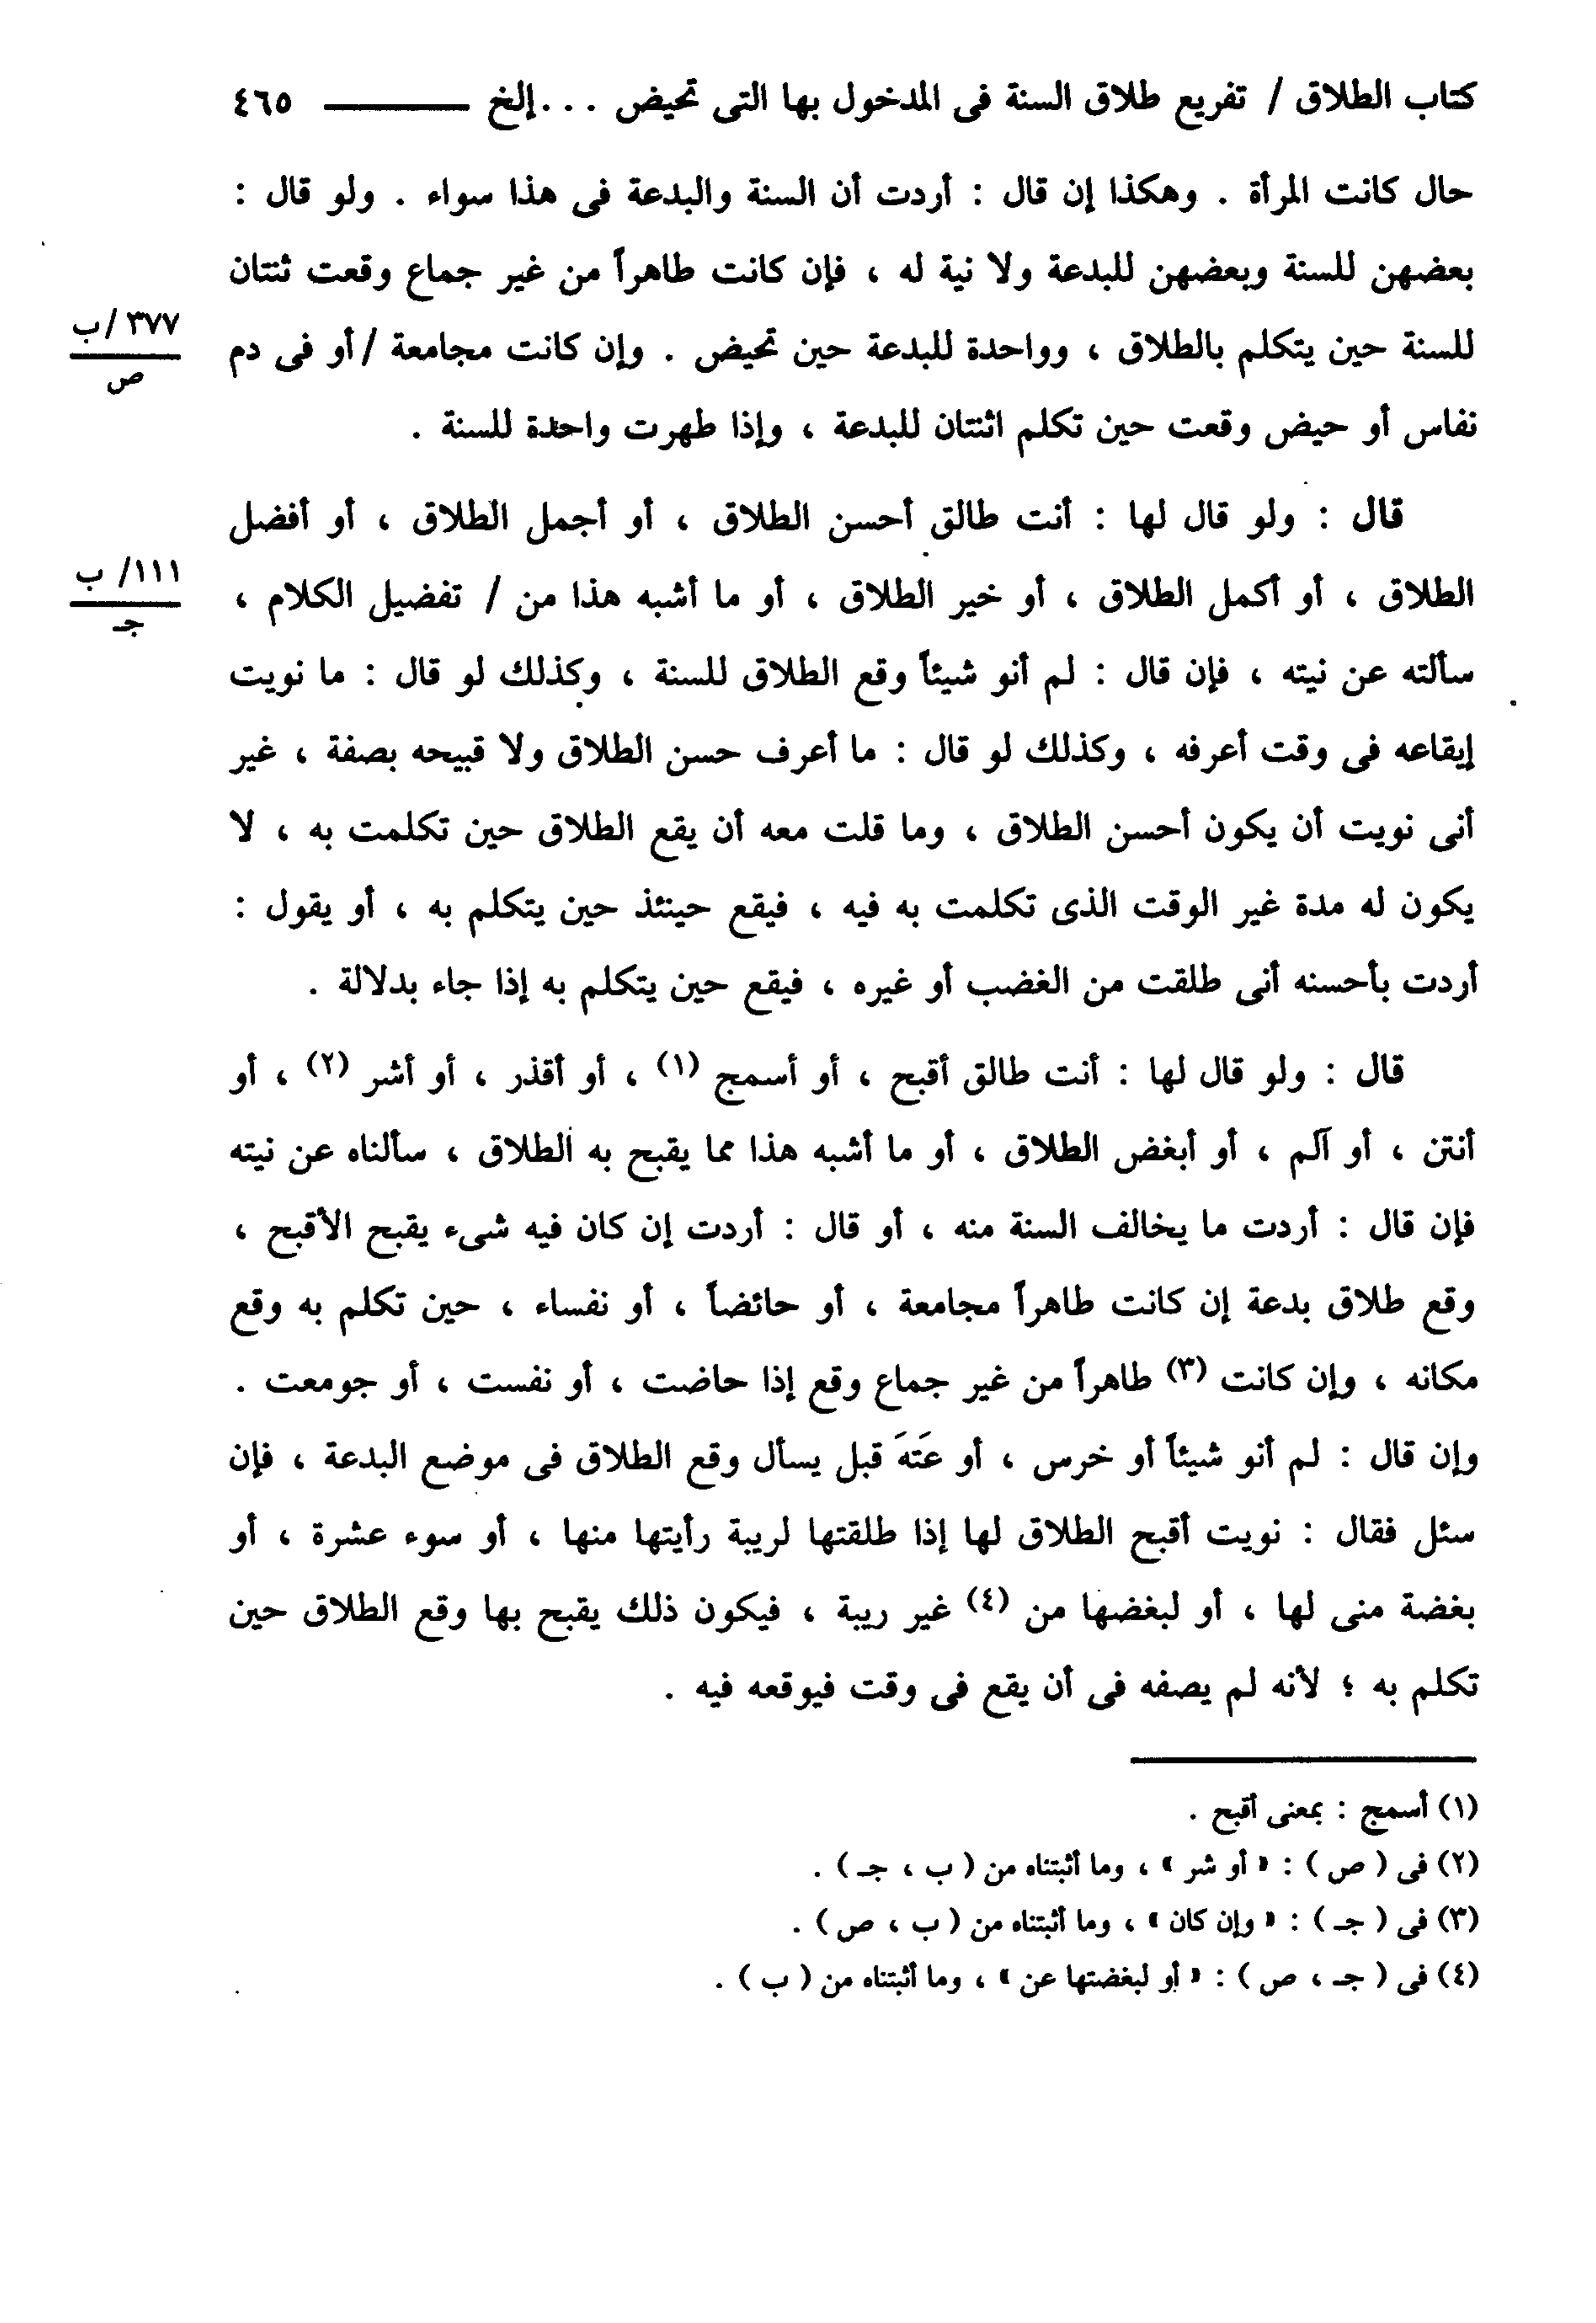 كتاب الطلاق / تفريع طلاق السنة فى المدخول بها التى تحيض . . . إلخ ـــــــ ٤٦٥
حال كانت المرأة . وهكذا إن قال : أردت أن السنة والبدعة فى هذا سواء . ولو قال :
بعضهن للسنة وبعضهن للبدعة ولا نية له ، فإن كانت طاهراً من غير جماع وقعت ثنتان
للسنة حين يتكلم بالطلاق ، وواحدة للبدعة حين تحيض . وإن كانت مجامعة / أو فى دم
٣٧٧/ب
ص
نفاس أو حيض وقعت حين تكلم اثنتان للبدعة ، وإذا طهرت واحدة للسنة .
قال : ولو قال لها : أنت طالق أحسن الطلاق ، أو أجمل الطلاق ، أو أفضل
الطلاق ، أو أكمل الطلاق ، أو خير الطلاق ، أو ما أشبه هذا من / تفضيل الكلام ،
١١١/ ب
جـ
سألته عن نيته ، فإن قال : لم أنو شيئاً وقع الطلاق للسنة ، وكذلك لو قال : ما نويت
إيقاعه فى وقت أعرفه ، وكذلك لو قال : ما أعرف حسن الطلاق ولا قبيحه بصفة ، غير
أنى نويت أن يكون أحسن الطلاق ، وما قلت معه أن يقع الطلاق حين تكلمت به ، لا
يكون له مدة غير الوقت الذى تكلمت به فيه ، فيقع حينئذ حين يتكلم به ، أو يقول :
أردت بأحسنه أنى طلقت من الغضب أو غيره ، فيقع حين يتكلم به إذا جاء بدلالة .
قال : ولو قال لها : أنت طالق أقبح ، أو أسمج (١) ، أو أقذر ، أو أشر (٢) ، أو
أنتن ، أو آلم ، أو أبغض الطلاق ، أو ما أشبه هذا مما يقبح به الطلاق ، سألناه عن نيته
فإن قال : أردت ما يخالف السنة منه ، أو قال : أردت إن كان فيه شىء يقبح الأقبح ،
وقع طلاق بدعة إن كانت طاهراً مجامعة ، أو حائضاً ، أو نفساء ، حين تكلم به وقع
مكانه ، وإن كانت (٣) طاهراً من غير جماع وقع إذا حاضت ، أو نفست ، أو جومعت .
وإن قال : لم أنو شيئاً أو خرس ، أو عَتَهَ قبل يسأل وقع الطلاق فى موضع البدعة ، فإن
سئل فقال : نويت أقبح الطلاق لها إذا طلقتها لريبة رأيتها منها ، أو سوء عشرة ، أو
بغضة منى لها ، أو لبغضها من (٤) غير ريبة ، فيكون ذلك يقبح بها وقع الطلاق حين
تكلم به ؛ لأنه لم يصفه فى أن يقع فى وقت فيوقعه فيه .
(١) أسمج : بمعنى أقبح .
(٢) فى ( ص ) : « أو شر » ، وما أثبتناه من ( ب ، جـ ) .
(٣) فى ( جـ ) : « وإن كان » ، وما أثبتناه من ( ب ، ص ) .
(٤) فى ( جـ ، ص ) : « أو لبغضتها عن » ، وما أثبتناه من ( ب ) .